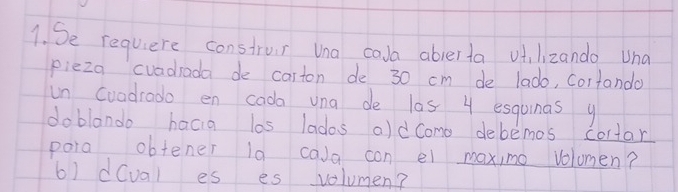 1. Se requiere construir una caja abierta utilizando una
pieza cuadrada de carton de 30 cm de lado, cortando
un cuadrado en cada una de las 4 esquinas y
doblando hacia los lados a) ¿Como debemos cortar
para obtener la caja con el maximo volumen?
b) ¿Cual es es volumen?